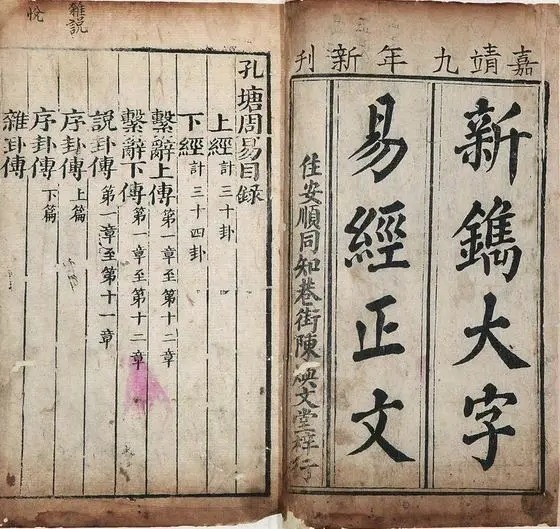 嘉靖九年新刊
新鐫大字
易經正文
住安順同知巷街陳文堂梓行
孔塘周易目錄
上經 計三十卦
下經 計三十四卦
繫辭上傳 第一章至第十二章
繫辭下傳 第一章至第十二章
說卦傳 第一章至第十一章
序卦傳 上篇
序卦傳 下篇
雜卦傳
雜説
悅